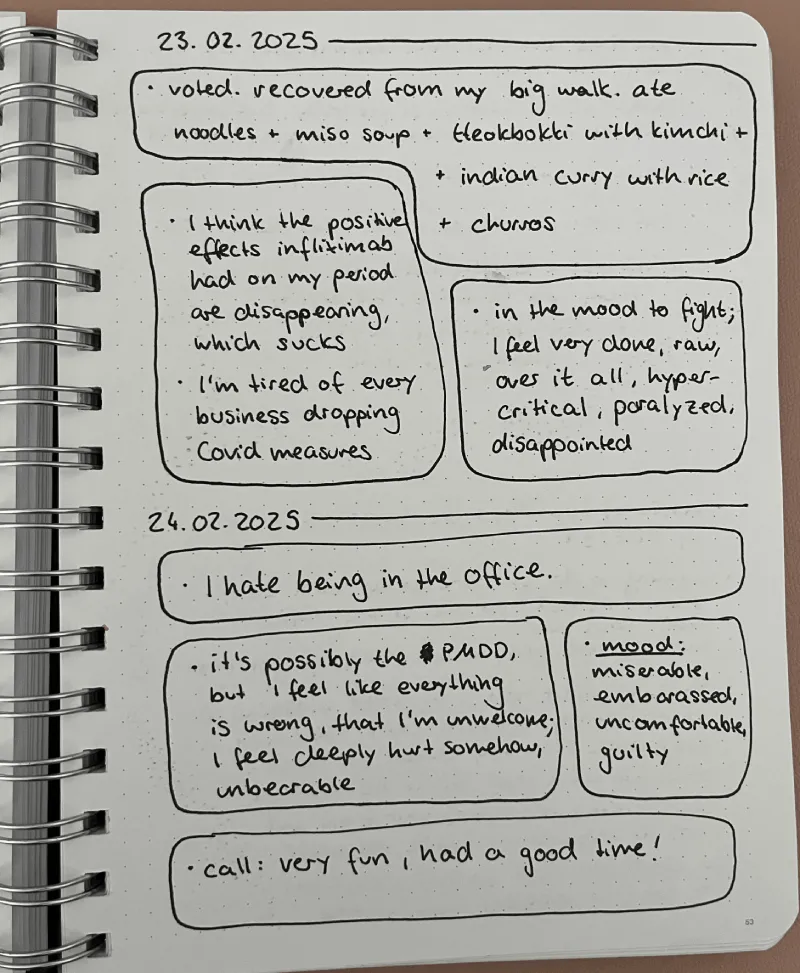 23.02.2025
· voted. recovered from my big walk. ate
noodles + miso soup + tteokbokki with kimchi +
+ indian curry with rice
+ churros
· I think the positive
effects infliximab
had on my period
are disappearing,
which sucks
· I'm tired of every
business dropping
Covid measures
· in the mood to fight;
I feel very done, raw,
over it all, hyper-
critical, paralyzed,
disappointed
24.02.2025
· I hate being in the office.
· it's possibly the PMDD,
but I feel like everything
is wrong, that I'm unwelcome;
I feel deeply hurt somehow,
unbearable
· mood:
miserable,
embarassed,
uncomfortable,
guilty
· call: very fun, had a good time!
53